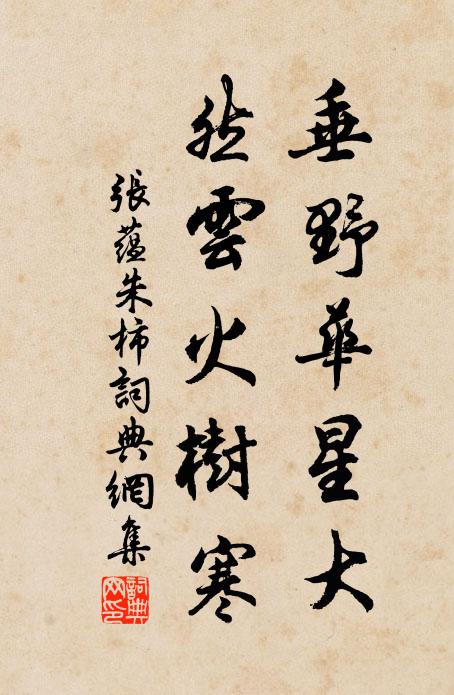 垂野華星大
然雲火樹寒
張蘊朱柿詞典網集
詞典
网印